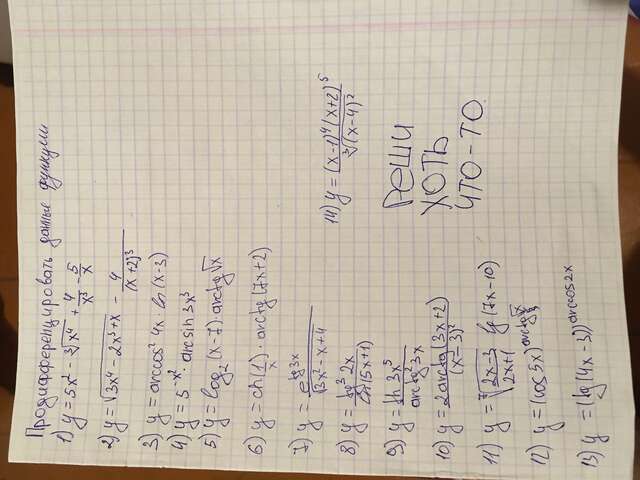 Продифференцировать данные функции
1) y = 5x² - ∛(x⁴) + 4/x³ - 5/x
2) y = √(3x⁴ - 2x³ + x) - 4/(x+2)³
3) y = arccos² 4x · ln(x-3)
4) y = 5^(-x²) · arcsin 3x³
5) y = log₂(x-7) · arctg √x
6) y = ch(1/x) · arctg(7x+2)
7) y = e^(tg 3x) / √(3x² - x + 4)
8) y = tg³ 2x / ln(5x+1)
9) y = th 3x⁵ / arctg² 3x
10) y = 2arctg(3x+2) / (x-3)²
11) y = ⁷√((2x-3)/(2x+1)) lg(7x-10)
12) y = (cos 5x)^(arctg √x)
13) y = (lg(4x-3))^(arccos 2x)
14) y = (x-1)⁴(x+2)⁵ / ∛((x-4)²)
РЕШИ
ХОТЬ
ЧТО-ТО